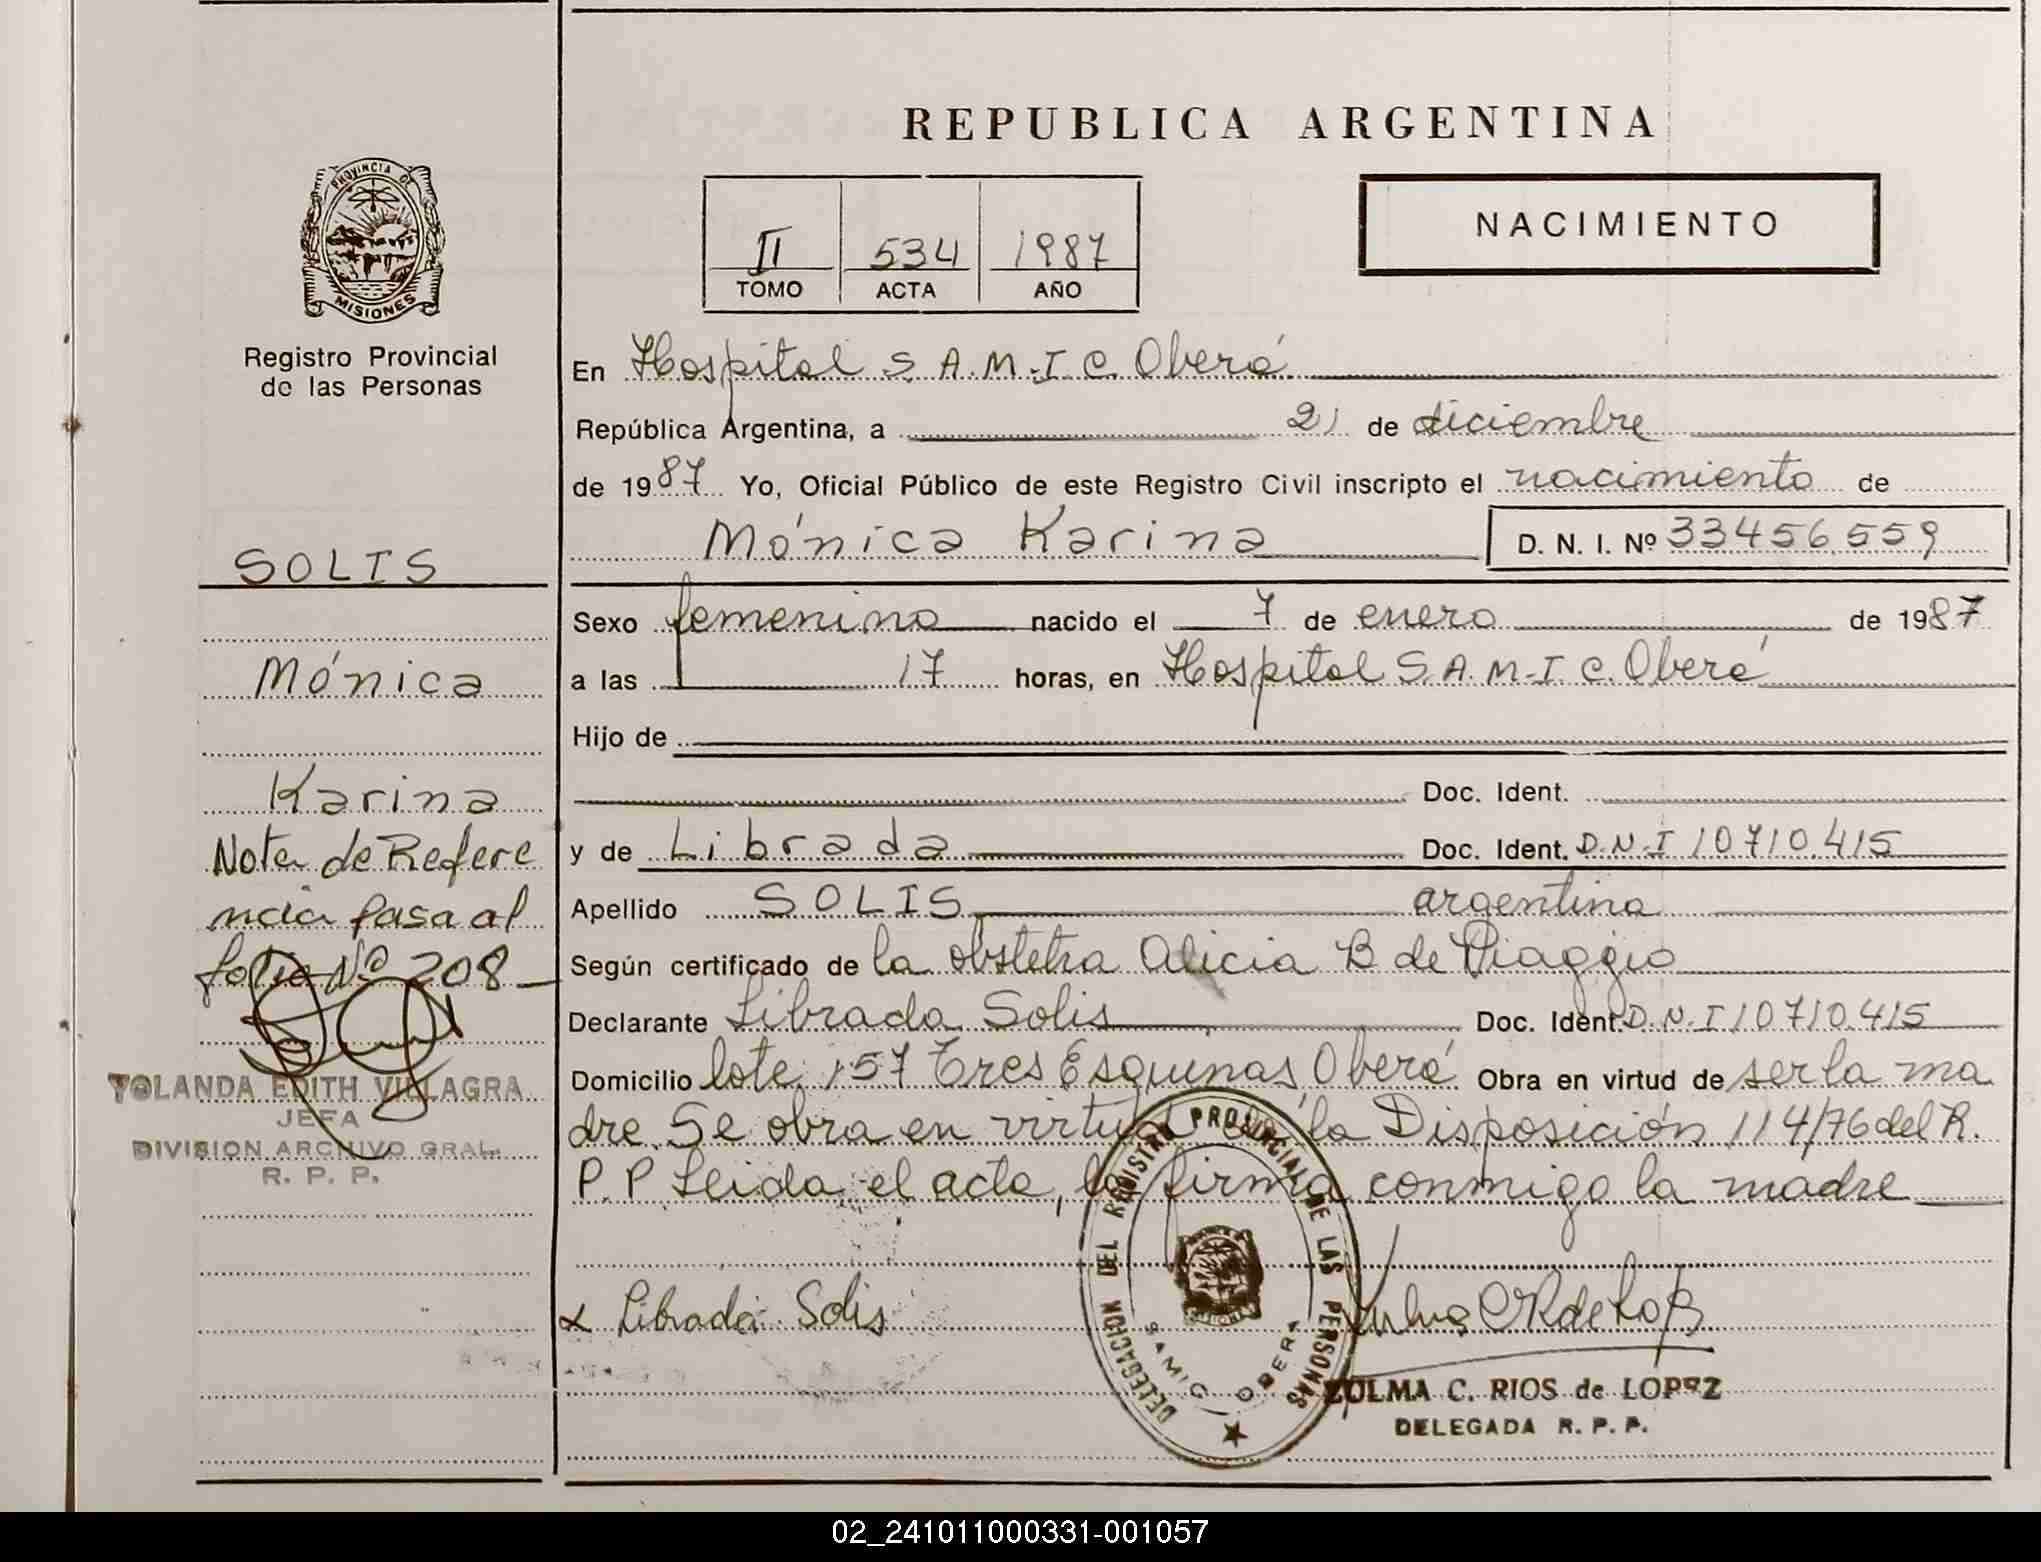 REPUBLICA ARGENTINA
PROVINCIA DE MISIONES
Registro Provincial
de las Personas
II 534 1987
TOMO ACTA AÑO
NACIMIENTO
En Hospital S.A.M.I.C. Oberá
República Argentina, a 21 de diciembre
de 1987 Yo, Oficial Público de este Registro Civil inscripto el nacimiento de
Mónica Karina D. N. I. Nº 33456559
SOLIS
Sexo femenino nacido el 7 de enero de 1987
Mónica
a las 17 horas, en Hospital S.A.M.I.C. Oberá
Hijo de
Karina
Doc. Ident.
Nota de Refere
y de Librada Doc. Ident. D.N.I 10710.415
ncia pasa al
Apellido SOLIS argentina
folio Nº 208
Según certificado de la obstetra Alicia B de Piaggio
Declarante Librada Solis Doc. Ident. D.N.I 10710.415
Domicilio lote 157 Tres Esquinas, Oberá Obra en virtud de ser la ma
YOLANDA EDITH VILLAGRA
JEFA
DIVISION ARCHIVO GRAL.
R. P. P.
dre. Se obra en virtud de la Disposición 114/76 del R.
P.P Leida el acta, la firma conmigo la madre
Librada Solis
DELEGACION DEL REGISTRO PROVINCIAL DE LAS PERSONAS
SAMIC OBERA
ZULMA C. RIOS de LOPEZ
DELEGADA R. P. P.
02_241011000331-001057